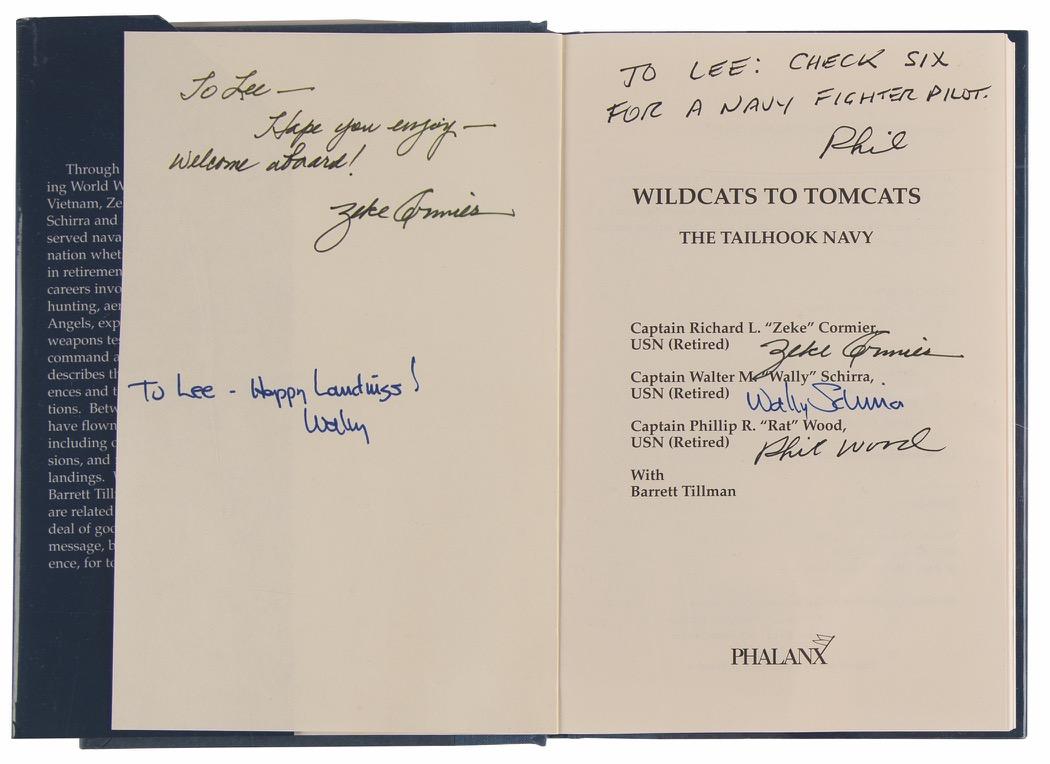 Through
ing World W
Vietnam, Ze
Schirra and
served nava
nation whet
in retiremen
careers invo
hunting, aer
Angels, exp
weapons te
command a
describes th
ences and t
tions. Betw
have flown
including c
sions, and
landings.
Barrett Till
are related
deal of goo
message, b
ence, for to
To Lee —
Hope you enjoy —
Welcome aboard!
Zeke Cormier
To Lee - Happy Landings!
Wally
TO LEE: CHECK SIX
FOR A NAVY FIGHTER PILOT.
Phil
WILDCATS TO TOMCATS
THE TAILHOOK NAVY
Captain Richard L. “Zeke” Cormier,
USN (Retired) Zeke Cormier
Captain Walter M. “Wally” Schirra,
USN (Retired) Wally Schirra
Captain Phillip R. “Rat” Wood,
USN (Retired) Phil Wood
With
Barrett Tillman
PHALANX